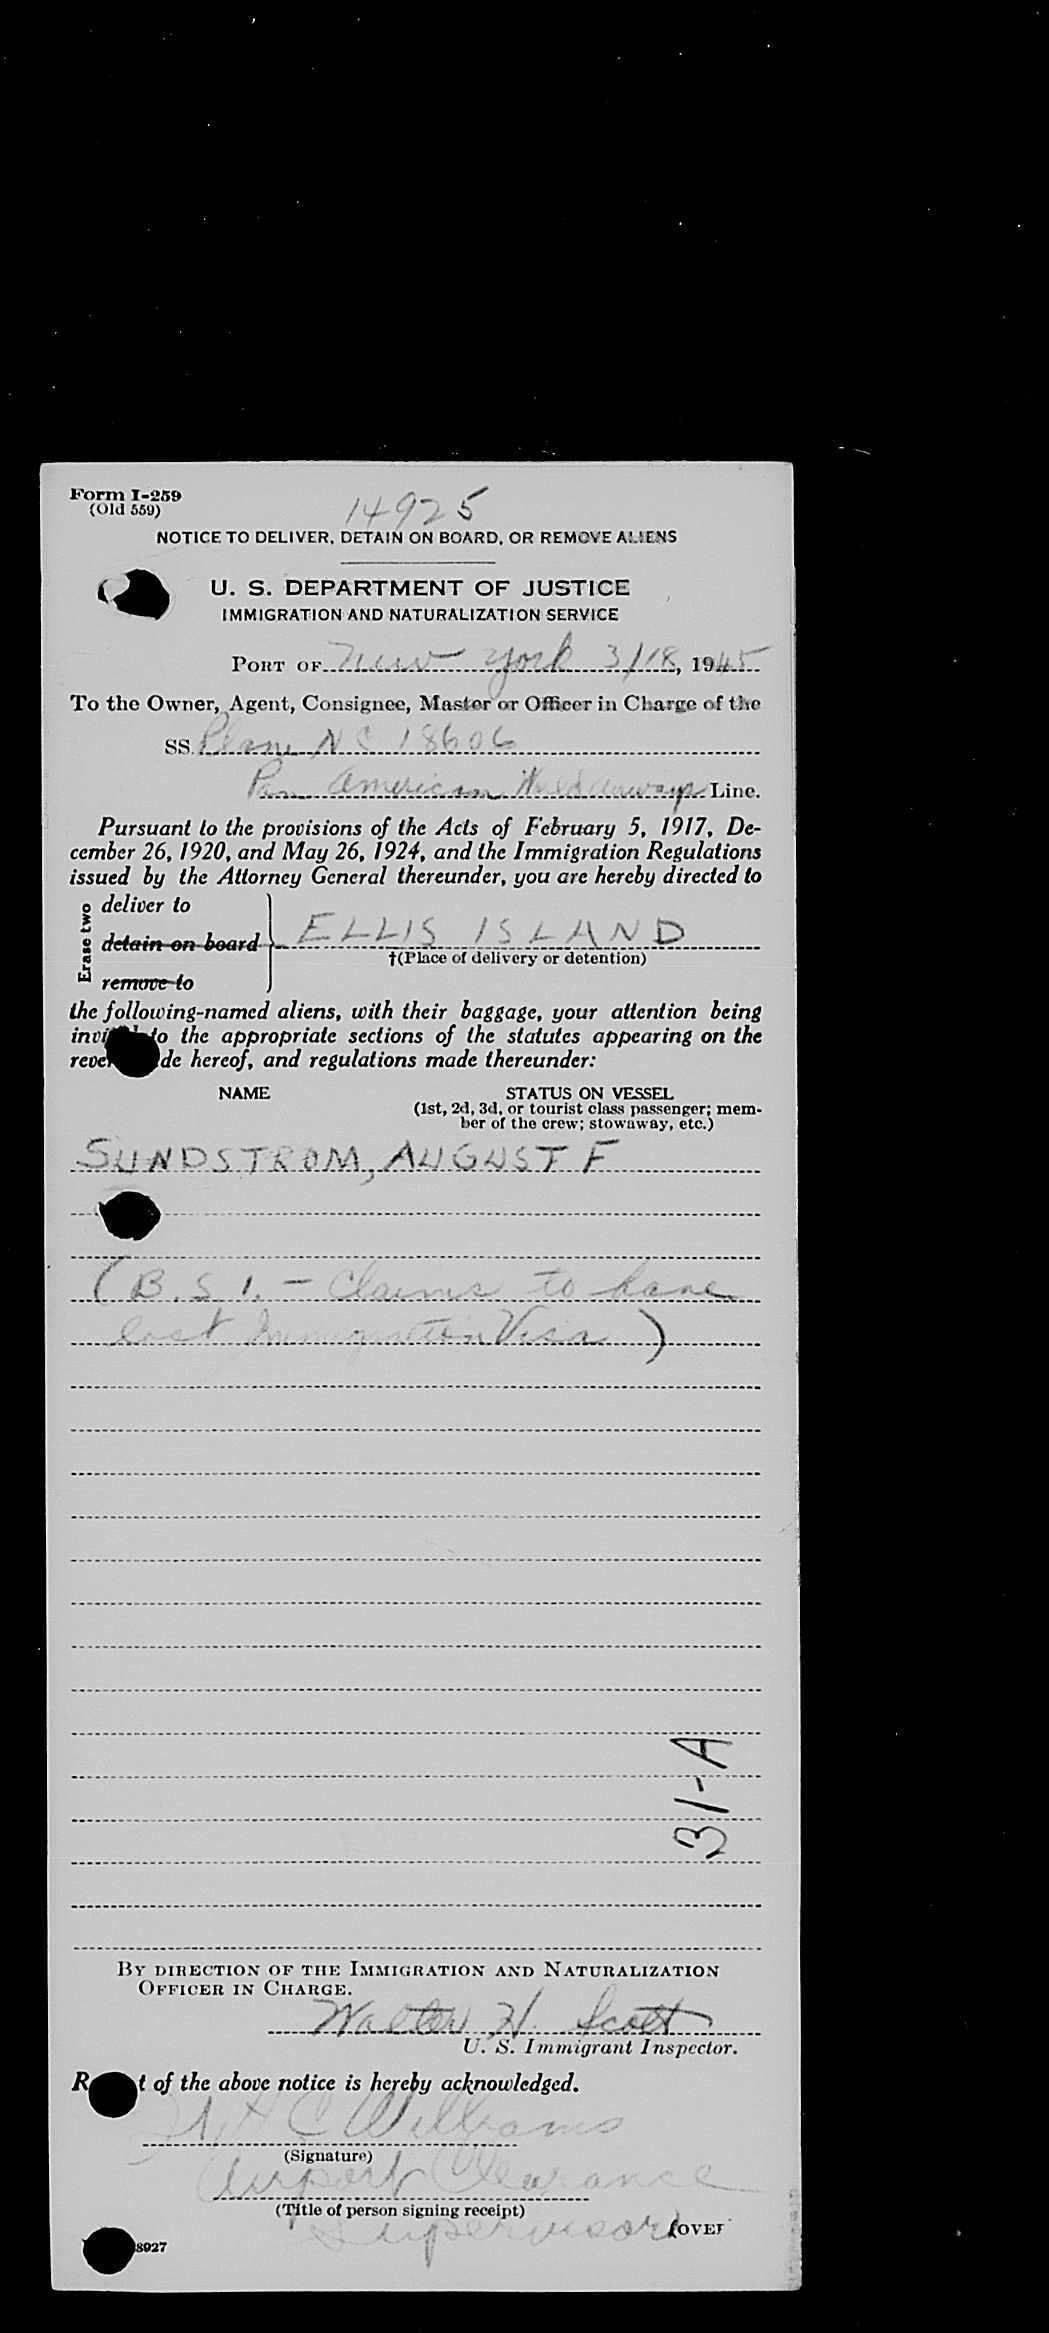 Form I-259
(Old 559)
14925
NOTICE TO DELIVER, DETAIN ON BOARD, OR REMOVE ALIENS
U. S. DEPARTMENT OF JUSTICE
IMMIGRATION AND NATURALIZATION SERVICE
PORT OF New York 3/18, 1945
To the Owner, Agent, Consignee, Master or Officer in Charge of the
SS. Plane NC 18606
Pan American World Airways Line.
Pursuant to the provisions of the Acts of February 5, 1917, De-
cember 26, 1920, and May 26, 1924, and the Immigration Regulations
issued by the Attorney General thereunder, you are hereby directed to
Erase two
deliver to
detain on board
remove to
ELLIS ISLAND
†(Place of delivery or detention)
the following-named aliens, with their baggage, your attention being
to the appropriate sections of the statutes appearing on the
hereof, and regulations made thereunder:
NAME
STATUS ON VESSEL
(1st, 2d, 3d, or tourist class passenger; mem-
ber of the crew; stowaway, etc.)
SUNDSTROM, AUGUST F
(B.S.I. - Claims to have
lost Immigration Visa)
31-A
BY DIRECTION OF THE IMMIGRATION AND NATURALIZATION
OFFICER IN CHARGE.
Walter H. Scott
U. S. Immigrant Inspector.
of the above notice is hereby acknowledged.
C Williams
(Signature)
Airport Clearance
(Title of person signing receipt)
Supervisor
(OVER
8927